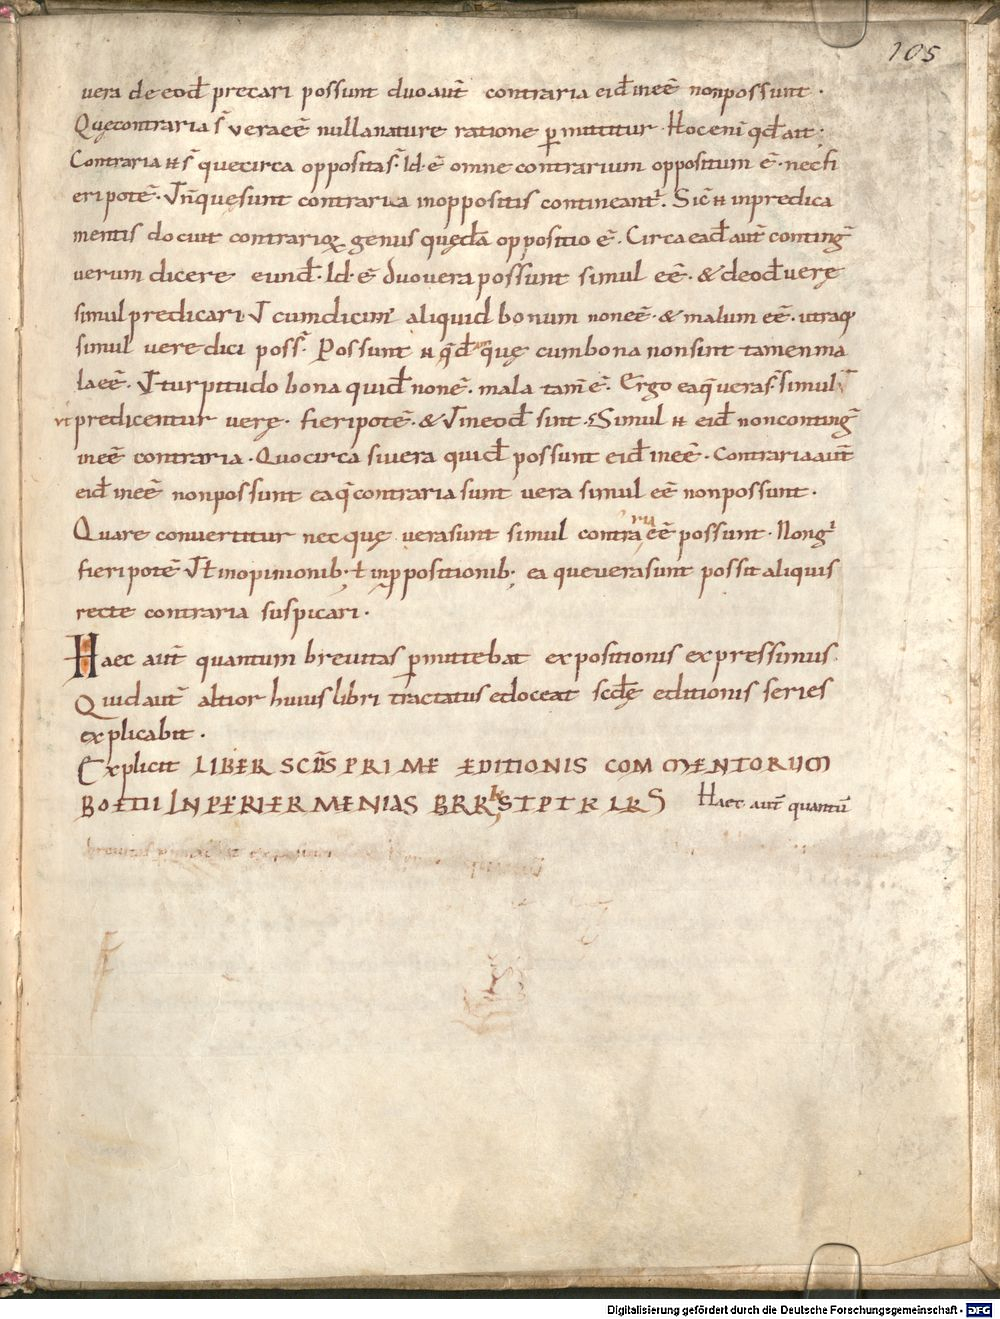 105
vera de eođ precari possunt duo aut̄ contraria eiđ inee᷃ non possunt ·
Quęcontraria s̄ vera ee᷃ nulla nature ratione ꝑmittitur · Hoc eni᷃ qđ ait ·
Contraria n̄ s̄ quecirca opposita s̄ · Id · ē omne contrarium oppositum ē · nec fi
eri potē · Vn̄ quęsunt contraria in oppositis contineant᷑ · Sic̄ n̄ in predica
mentis docuit contrarioꝝ genus quędā oppositio ē · Circa eađ aut̄ conting᷑
verum dicere eunđ · Id · ē duo vera possunt simul ee᷃ · & de eođ verę
simul predicari · Vt cum dicim᷒ aliquid bonum non ee᷃ · & malum ee᷃ · utraq;
simul vere dici poss̄ · Possunt n̄ qđ quę cum bona non sint tamen ma
la ee᷃ · Vt turpitudo bona quiđ non ē · mala tam̄ ē · Ergo ea q̄ vera s̄ · simul
vt predicentur verę · fieri potē · & Vt in eođ sint · Simul n̄ eiđ non conting᷑
inee᷃ contraria · Quocirca si vera quiđ possunt eiđ inee᷃ · Contraria aut̄
eiđ inee᷃ non possunt ea q̄ contraria sunt vera simul ee᷃ non possunt ·
Quare convertitur nec quę vera sunt simul contra ee᷃ possunt · Non g᷑
fieri potē Vt in opinionib; · ł in ꝓpositionib; ea que vera sunt possit aliquis
recte contraria suspicari ·
Haec aut̄ quantum brevitas ꝑmittebat expositionis expressimus ·
Quid aut̄ altior huius libri tractatus edoceat scđę editionis series
explicabit ·
Explicit LIBER SCD̄S PRIME EDITIONIS COMMENTORUM
BOETII IN PERIERMENIAS Haec aut̄ quantū
Digitalisierung gefördert durch die Deutsche Forschungsgemeinschaft - DFG